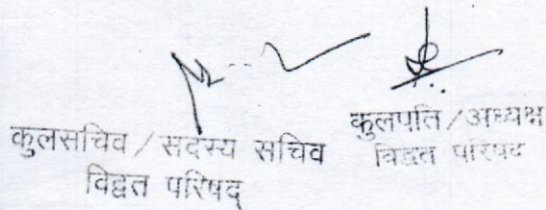 कुलसचिव/सदस्य सचिव
विद्वत परिषद्
कुलपति/अध्यक्ष
विद्वत परिषद